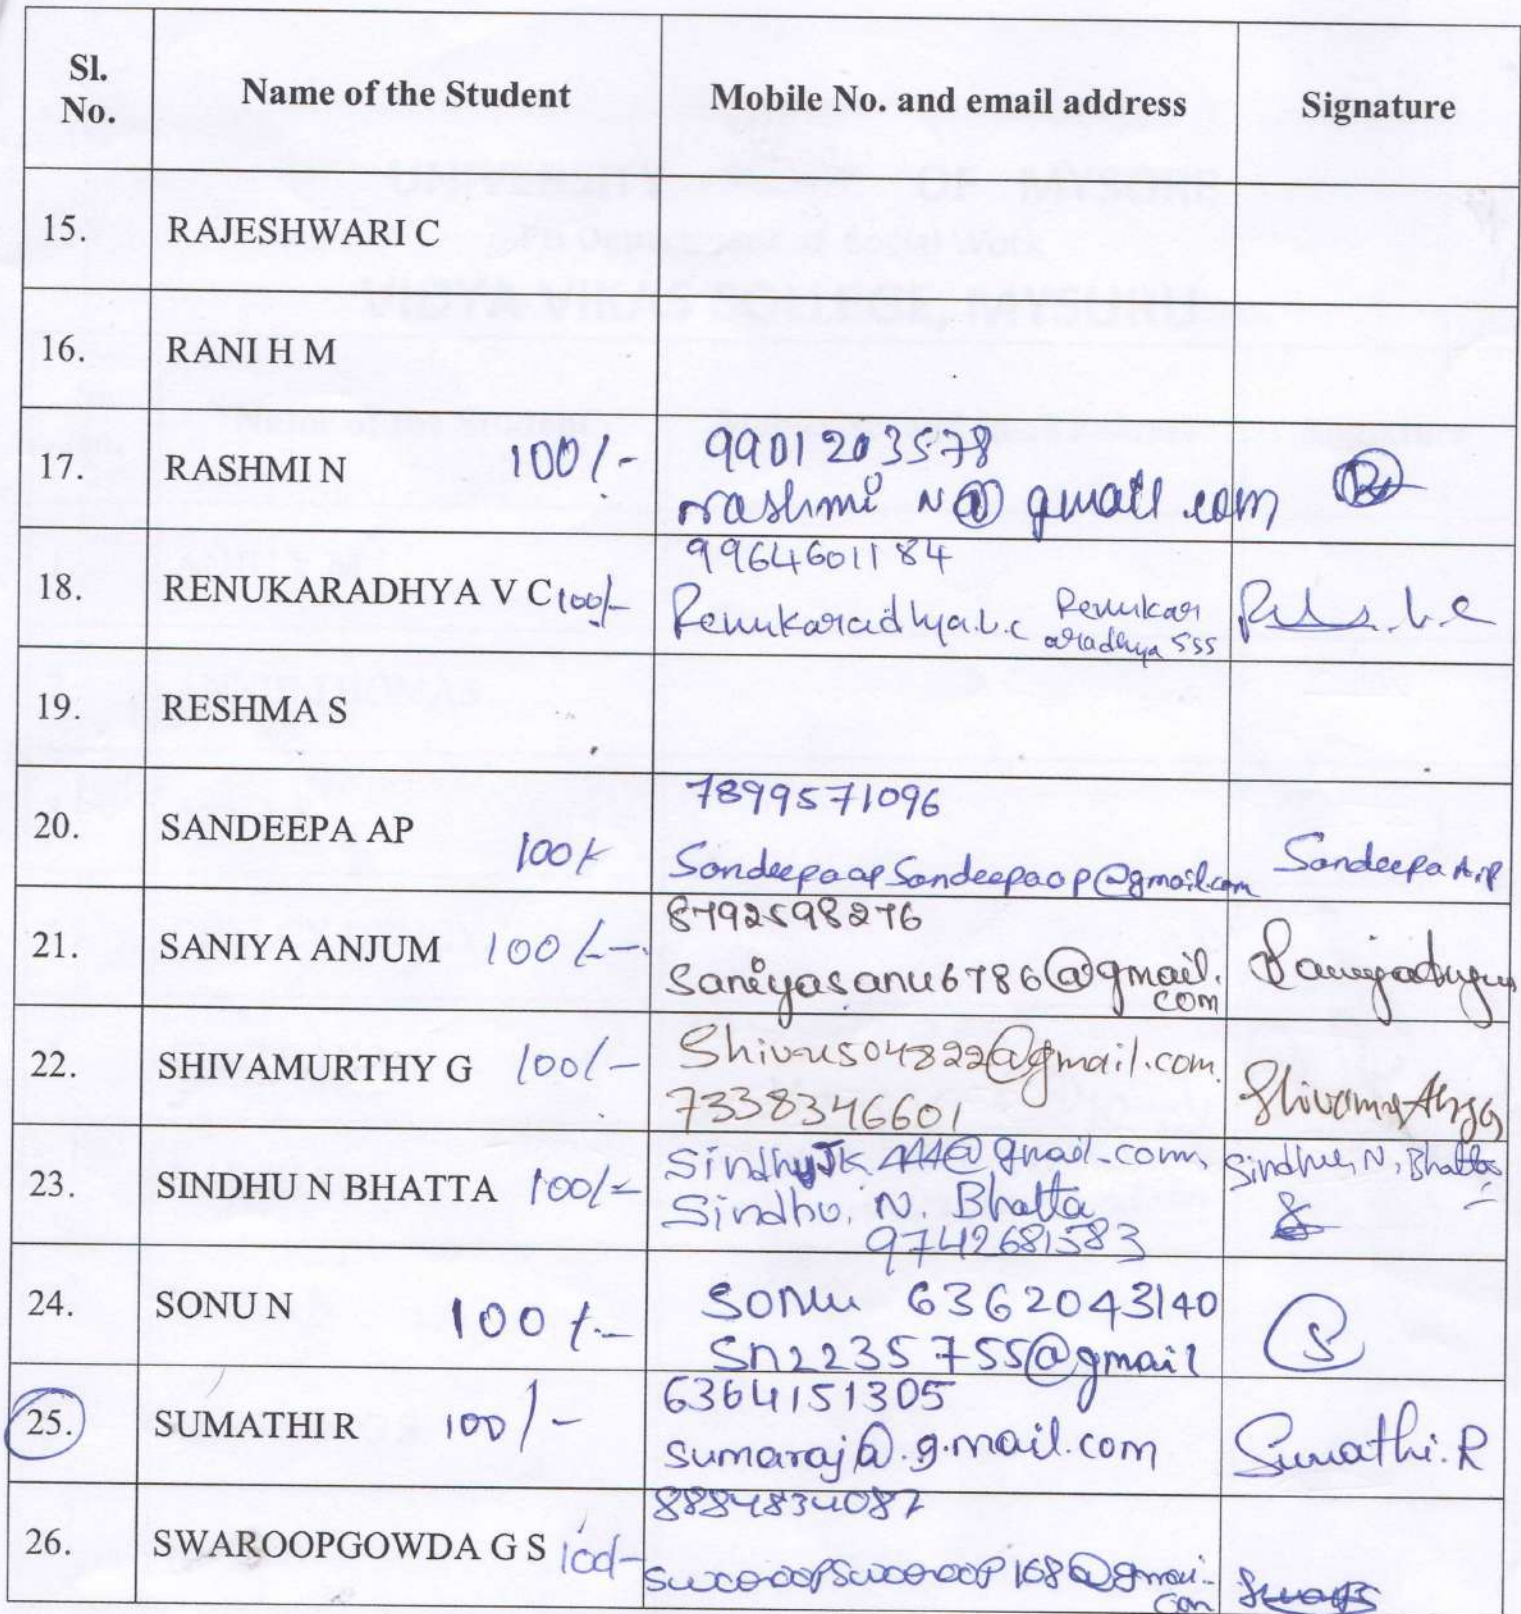 Sl. No.
Name of the Student
Mobile No. and email address
Signature
15.
RAJESHWARI C
16.
RANI H M
17.
RASHMI N 100/-
9901203578
rashmi N@ gmail.com
18.
RENUKARADHYA V C 100/-
9964601184
Renukaradhya.v.c Renukar
aradhya 555
19.
RESHMA S
20.
SANDEEPA AP 100/-
7899571096
SandeepaapSandeepaap@gmail.com
Sandeepa A.P
21.
SANIYA ANJUM 100/-
8792598276
Saniyasanu6786@gmail.
com
22.
SHIVAMURTHY G 100/-
Shivu504822@gmail.com
7338346601
Shivamurthy G
23.
SINDHU N BHATTA 100/-
SindhuJK444@gmail.com
Sindhu. N. Bhatta
9742681583
Sindhu, N, Bhatta
24.
SONU N 100/-
Sonu 6362043140
Sn2235755@gmail
S
25.
SUMATHI R 100/-
6364151305
sumaraj@.g.mail.com
Sumathi.R
26.
SWAROOPGOWDA G S 100/-
8884834087
swaroopswaroop168@gmai-
com
UNIVERSITY OF MYSORE
PG Department of Social Work
VIDYA VIKAS COLLEGE, MYSURU